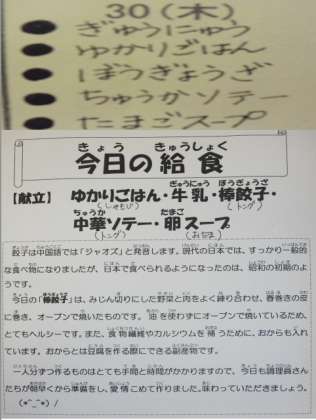 30(木)
ぎゅうにゅう
ゆかりごはん
ぼうぎょうざ
ちゅうかソテー
たまごスープ
きょう きゅうしょく
今日の給食
ぎゅうにゅう ぼうぎょうざ
【献立】 ゆかりごはん・牛乳・棒餃子・
(しゃもじ) (トング)
ちゅうか たまご
中華ソテー・卵スープ
(トング) (おたま)
餃子は中国語では「ジャオズ」と発音します。現代の日本では、すっかり一般的
な食べ物になりましたが、日本で食べられるようになったのは、昭和の初期のよ
うです。
今日の「棒餃子」は、みじん切りにした野菜と肉をよく練り合わせ、春巻きの皮
に巻き、オーブンで焼いたものです。油を使わずにオーブンで焼いているため、
とてもヘルシーです。また、食物繊維やカルシウムを補うために、おからも入れ
ています。おからとは豆腐を作る際にできる副産物です。
一人分ずつ作るものはとても手間と時間がかかりますので、今日も調理員さん
たちが朝早くから準備をし、愛情こめて作りました。味わっていただきましょう。
(*^_^*)/